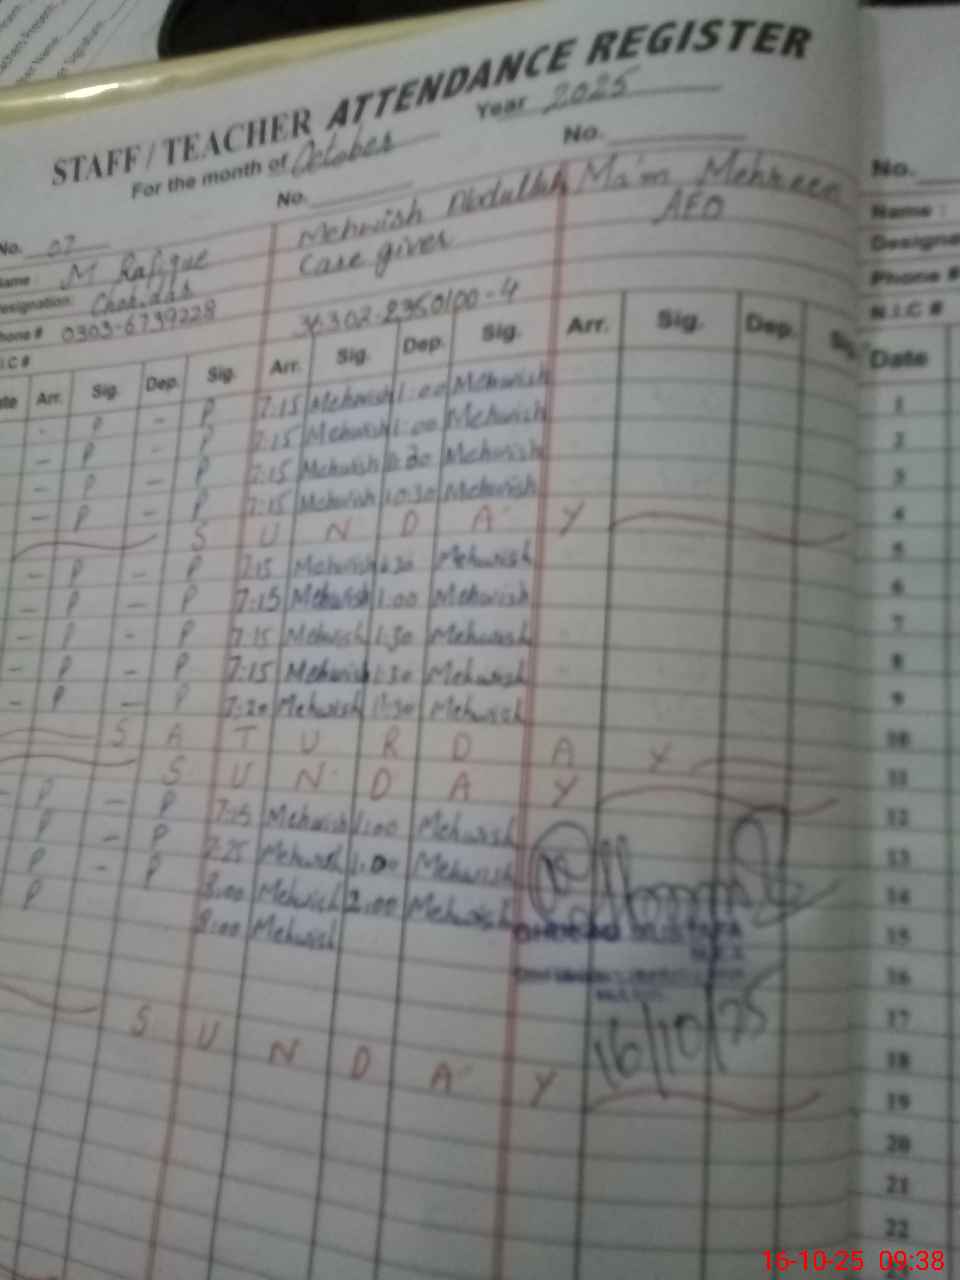 STAFF / TEACHER ATTENDANCE REGISTER
For the month of October Year 2025
No. 07 No. No.
M Rafique Mehwish Abdullah Ma'm Mehreen
Designation: Care giver AEO
Phone # 0303-6739228
36302-2350100-4
Arr. Sig. Dep. Sig. Arr. Sig. Dep. Sig. Arr. Sig. Dep. Sig.
- P - P 7:15 Mehwish 1:00 Mehwish
- P - P 7:15 Mehwish 1:00 Mehwish
- P - P 7:15 Mehwish Mehwish
- P - P 7:15 Mehwish 10:30 Mehwish
S U N D A Y
- P - P 7:15 Mehwish Mehwish
- P - P 7:15 Mehwish 1:00 Mehwish
- P - P 7:15 Mehwish 1:30 Mehwish
- P - P 7:15 Mehwish 1:30 Mehwish
- P - P 7:20 Mehwish 11:30 Mehwish
S A T U R D A Y
S U N D A Y
- P - P 7:15 Mehwish 1:00 Mehwish
P - P 7:25 Mehwish 1:00 Mehwish
P - P 8:00 Mehwish 2:00 Mehwish
P 8:00 Mehwish
16/10/25
S U N D A Y
No.
Name :
Phone #
N.I.C #
Date
1
2
3
4
5
6
7
8
9
10
11
12
13
14
15
16
17
18
19
20
21
22
16-10-25 09:38